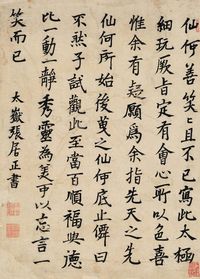 仙何善笑笑且不已寫此太極
細玩厥旨定有會心所以色喜
惟余有疑願為余指先天之先
仙何所始後叟之仙何底止僊曰
不然子試觀此至當百順福與德
比一動一靜秀靈為美可以忘言一
笑而已
太嶽張居正書